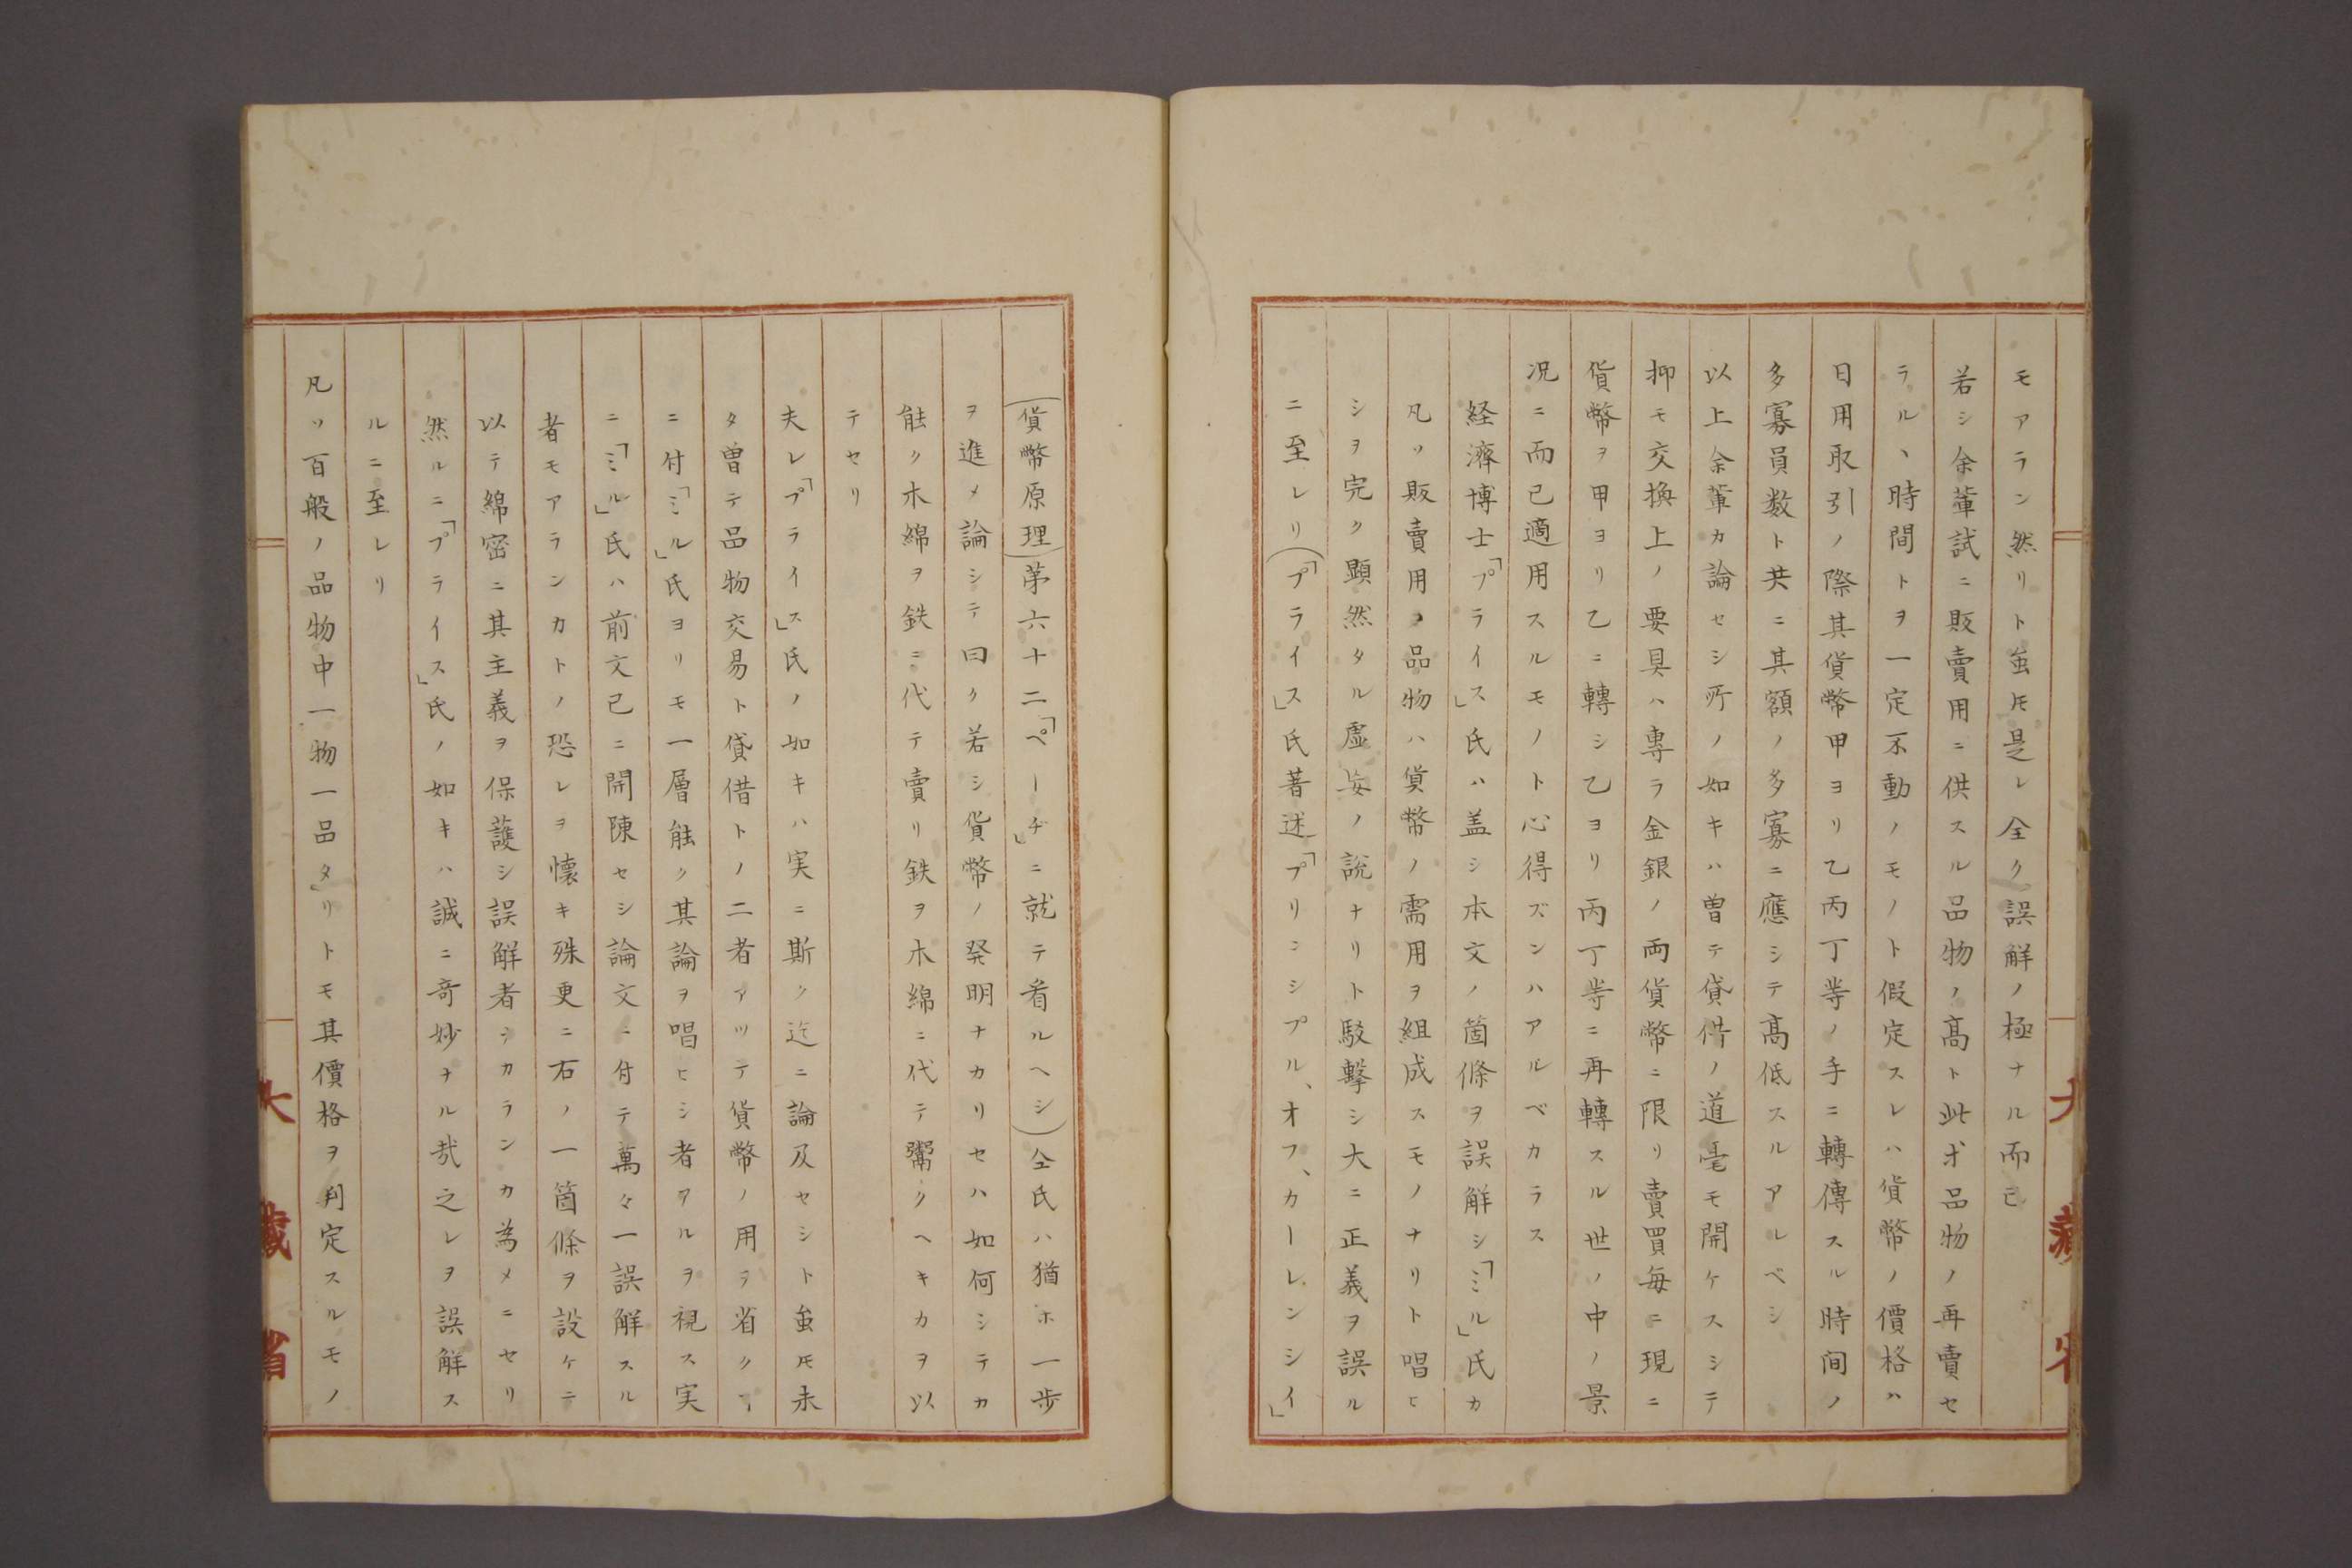 モアラン然リト虽𪜈是レ全ク誤解ノ極ナル而已
若シ余輩試ニ販賣用ニ供スル品物ノ高ト此ホ品物ノ再賣セ
ラルヽ時間トヲ一定不動ノモノト假定スレハ貨幣ノ價格ハ
日用取引ノ際其貨幣甲ヨリ乙丙丁等ノ手ニ轉傳スル時间ノ
多寡員数ト共ニ其額ノ多寡ニ應シテ高低スルアルベシ
以上余輩カ論セシ所ノ如キハ曽テ貸借ノ道毫モ開ケスシテ
抑モ交換上ノ要具ハ專ラ金銀ノ両貨幣ニ限リ賣買毎ニ現ニ
貨幣ヲ甲ヨリ乙ニ轉シ乙ヨリ丙丁等ニ再轉スル世ノ中ノ景
况ニ而已適用スルモノト心得ズンハアルベカラス
経濟博士「プライス」氏ハ盖シ本文ノ箇條ヲ誤解シ「ミル」氏カ
凡ソ販賣用ノ品物ハ貨幣ノ需用ヲ組成スモノナリト唱ヒ
シヲ完ク顕然タル虚妄ノ説ナリト駁撃シ大ニ正義ヲ誤ル
ニ至レリ(「プライス」氏著述「プリンシプル、オフ、カーレンシイ」
(貨幣原理)苐六十二「ペーヂ」ニ就テ看ルヘシ)仝氏ハ猶ホ一歩
ヲ進メ論シテ曰ク若シ貨幣ノ発明ナカリセハ如何シテカ
能ク木綿ヲ鉄ニ代テ賣リ鉄ヲ木綿ニ代テ鬻クヘキカヲ以
テセリ
夫レ「プライス」氏ノ如キハ実ニ斯ク迄ニ論及セシト虽𪜈未
タ曽テ品物交易ト貸借トノ二者アツテ貨幣ノ用ヲ省クヿ
ニ付「ミル」氏ヨリモ一層能ク其論ヲ唱ヒシ者アルヲ視ス実
ニ「ミル」氏ハ前文已ニ開陳セシ論文ニ付テ萬々一誤解スル
者モアランカトノ恐レヲ懐キ殊更ニ右ノ一箇條ヲ設ケテ
以テ綿密ニ其主義ヲ保護シ誤解者ヿカランカ為メニセリ
然ルニ「プライス」氏ノ如キハ誠ニ竒妙ナル哉之レヲ誤解ス
ルニ至レリ
凡ソ百般ノ品物中一物一品タリトモ其價格ヲ判定スルモノ
大藏省
大藏省